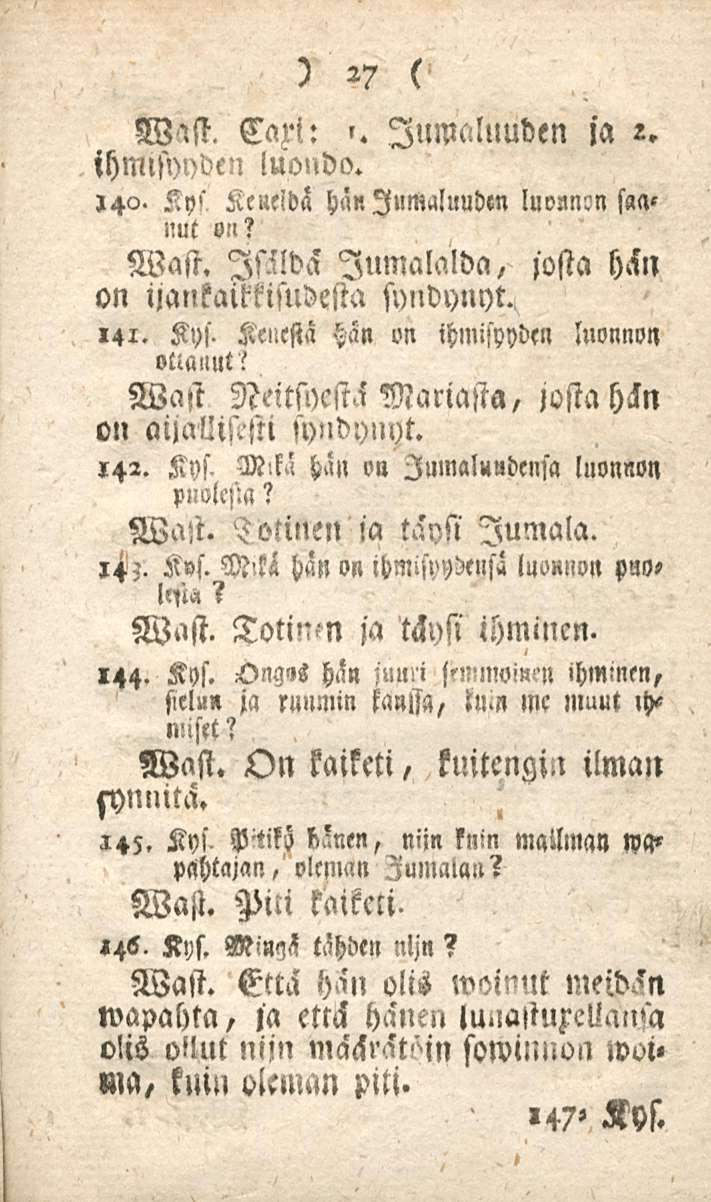 ) 27 (
Wast. Caxi: 1. Jumaluuden ja 2.
ihmisyyden luondo.
140. Kys. Keneldä hän Jumaluuden luonnon saa-
nut on?
Wast. Isäldä Jumalalda, josta hän
on ijankaikkisudesta syndynyt.
141. Kys. Kenestä hän on ihmisyyden luonnon
ottanut?
Wast Neitsyestä Mariasta, josta hän
on aijallisesti syndynyt.
142. Kys. Mikä hän on Jumaluudensa luonnon
puolesta?
Wast. Totinen ja täysi Jumala.
143. Kys. Mikä hän on ihmisyydensä luonnon puo-
lesta?
Wast. Totinen ja täysi ihminen.
144. Kys. Ongos hän juuri semmoinen ihminen,
sielun ja ruumin kanssa, kuin me muut ih-
miset?
Wast. On kaiketi, kuitengin ilman
synnitä.
145. Kys. Pitikö hänen, niin kuin mailman wa-
pahtajan, oleman Jumalan?
Wast. Piti kaiketi.
146. Kys. Mingä tähden nijn?
Wast. Että hän olis woinut meidän
wapahta, ja että hänen lunastuxellansa
olis ollut nijn määrätöin sowinnon woi-
ma, kuin oleman piti.
147. Kys.